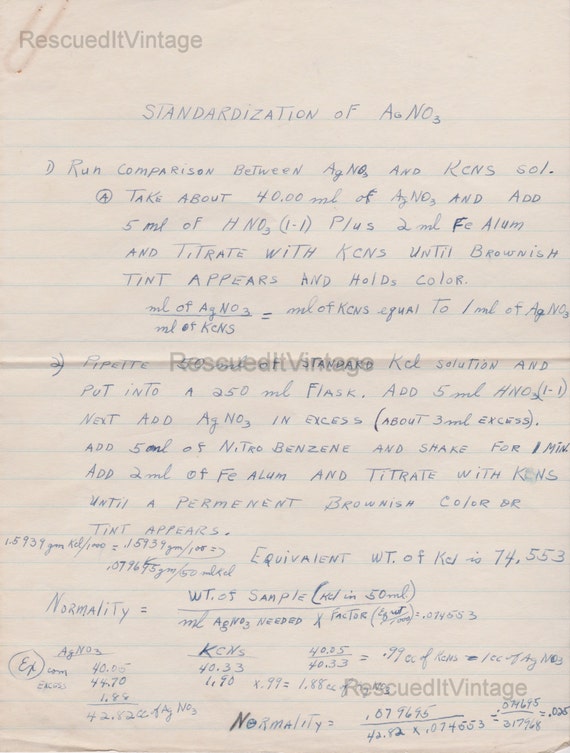 RescuedItVintage
STANDARDIZATION OF AgNO3
1) RUN COMPARISON BETWEEN AgNO3 AND KCNS SOL.
Ⓐ TAKE ABOUT 40.00 ml of AgNO3 AND ADD
5 ml OF HNO3 (1-1) Plus 2 ml Fe Alum
AND TITRATE WITH KCNS UNTIL BROWNISH
TINT APPEARS AND HOLDS COLOR.
ml of AgNO3 / ml of KCNS = ml of KCNS equal To 1 ml of AgNO3
RescuedItVintage
2) PIPETTE 50 ml of STANDARD Kcl SOLUTION AND
PUT INTO A 250 ml FLASK. ADD 5 ml HNO3 (1-1)
NEXT ADD AgNO3 IN EXCESS (ABOUT 3 ml EXCESS).
ADD 5 ml of NITRO BENZENE AND SHAKE FOR 1 MIN.
ADD 2 ml of Fe ALUM AND TITRATE WITH KCNS
UNTIL A PERMENENT BROWNISH COLOR OR
TINT APPEARS.
1.5939 gm Kcl/1000 = .15939 gm/100 =
.079695 gm/50 ml Kcl
EQUIVALENT WT. OF Kcl is 74.553
NORMALITY = WT. of SAMPLE (Kcl in 50 ml) / ml AgNO3 NEEDED X FACTOR (Eq wt/1000) = .074553
AgNO3 KCNS
Ex com 40.05 40.33 40.05 / 40.33 = .99 cc of KCNS = 1 cc of AgNO3
EXCESS 44.70 1.90 X .99 = 1.88 cc of AgNO3
1.88
42.82 cc of AgNO3
RescuedItVintage
NORMALITY = .079695 / 42.82 X .074553 = .079695 / 3.17968 = .025